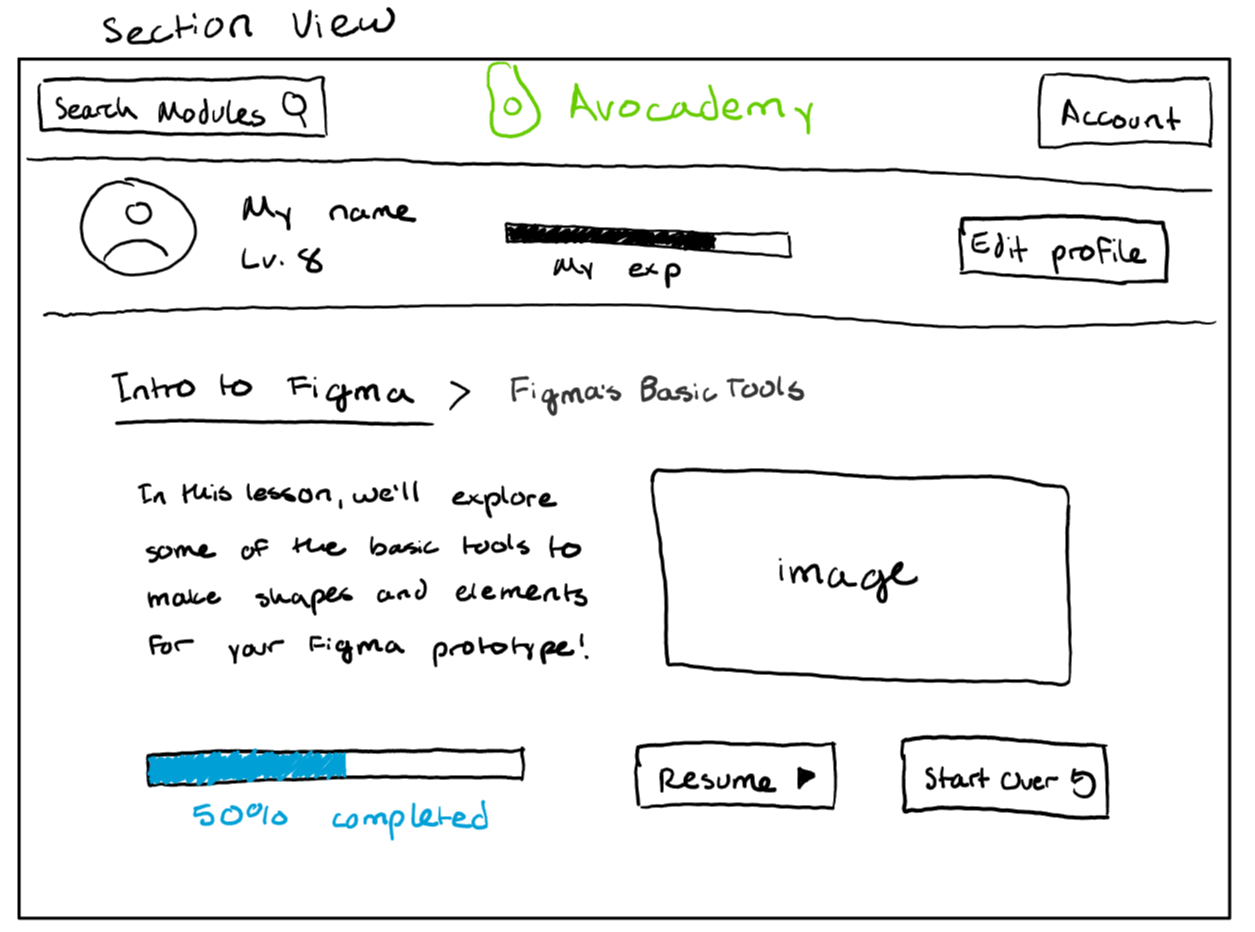 Section View
Search Modules
Avocademy
Account
My name
Lv. 8
My exp
Edit profile
Intro to Figma > Figma's Basic Tools
In this lesson, we'll explore
some of the basic tools to
make shapes and elements
for your Figma prototype!
image
50% completed
Resume
Start Over